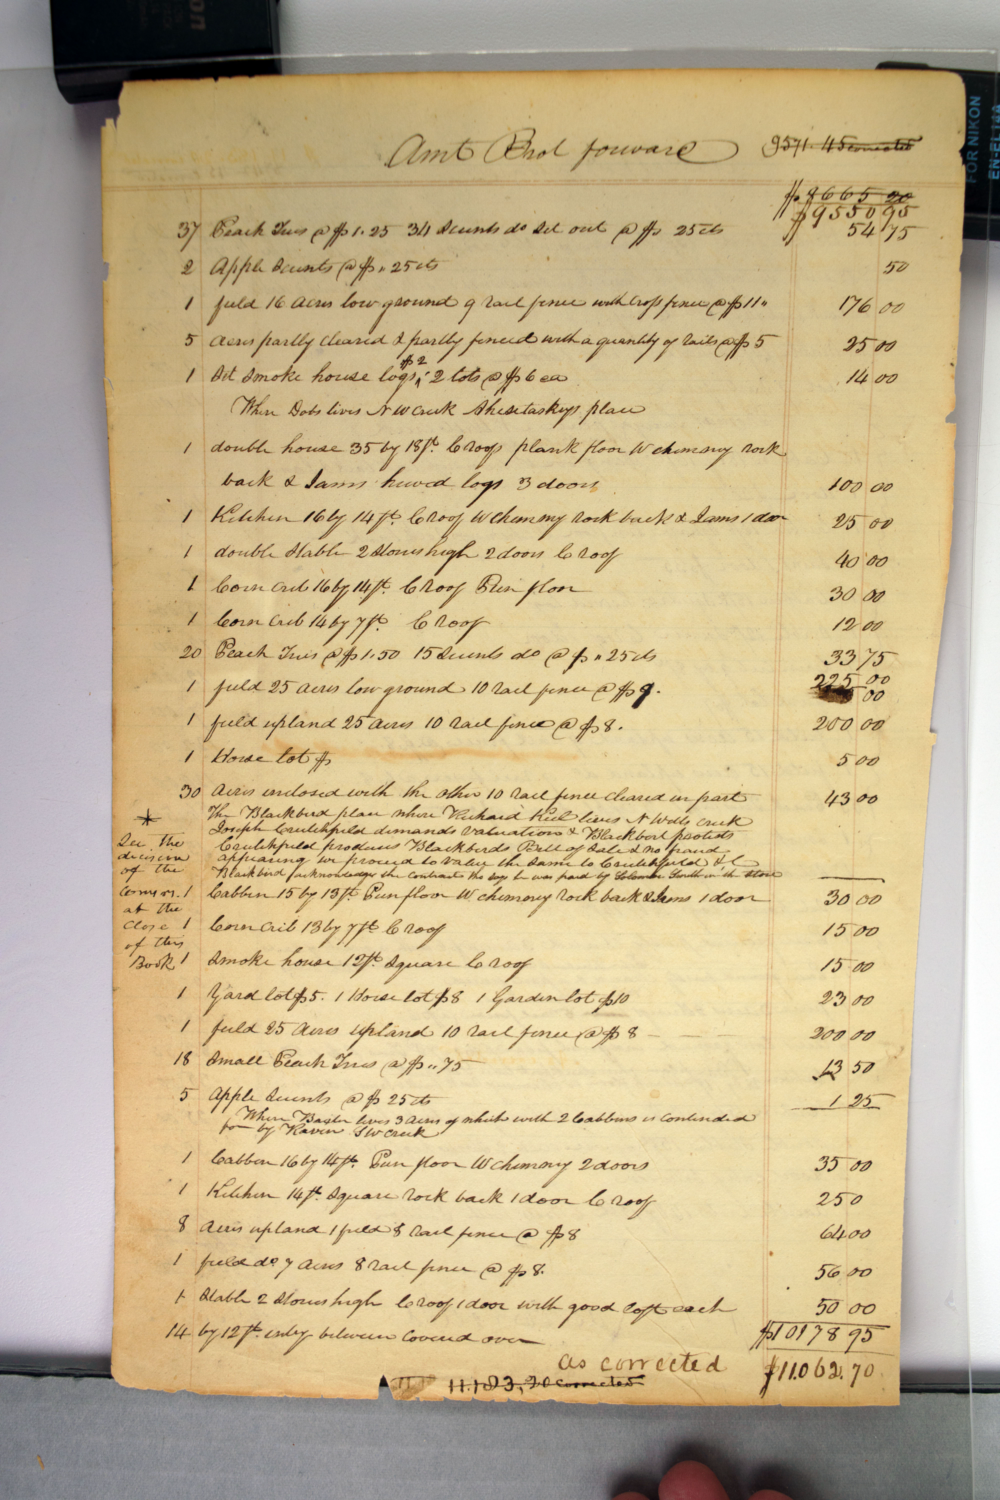 Amt Brot forward 9571.45 corrected
$ 8665 20
$ 9550 95
37 Peach Trees @ $1.25 34 Scients do Set out @ $ 25 cts 54 75
2 Apple Scients @ $ " 25 cts 50
1 field 16 Acres low ground 9 rail fence with Cross fence @ $11 " 176 00
5 Acres partly cleared & partly fenced with a quantity of rails @ $5 25 00
$2
1 Set Smoke house logs, 2 lots @ $6 ea 14 00
Where Dobs lives N W Creek place
1 double house 35 by 18 ft. C roof plank floor W chimney rock
back & Jams hewed logs 3 doors 100 00
1 Kitchen 16 by 14 ft. C roof W chimney rock back & Jams 1 door 25 00
1 double Stable 2 Stories high 2 doors C roof 40 00
1 Corn Crib 16 by 14 ft. C roof Pun floor 30 00
1 Corn Crib 14 by 7 ft. C roof 12 00
20 Peach Trees @ $1.50 15 Scients do @ $ " 25 cts 33 75
225 00
1 field 25 Acres low ground 10 rail fence @ $9. 00
1 field upland 25 Acres 10 rail fence @ $8. 200 00
1 Horse lot $ 5 00
30 Acres enclosed with the other 10 rail fence cleared in part 43 00
The Blackbird place where Keel lives N creek
Joseph Crutchfield demands valuation & Blackbird protests
Crutchfield produces Blackbirds Bill of Sale & no fraud
appearing we proceed to value the Same to Crutchfield &C
Blackbird acknowledges the contract he says he was paid by in the Store
*
See the
decision
of the
Comrs.
at the
Close
of this
Book
1 Cabbin 15 by 13 ft. Pun floor W chimney rock back & Jams 1 door 30 00
1 Corn crib 13 by 7 ft. C roof 15 00
1 Smoke house 12 ft. Square C roof 15 00
1 Yard lot $5. 1 Horse lot $8 1 Garden lot $10 23 00
1 field 25 Acres upland 10 rail fence @ $8 200 00
18 Small Peach Trees @ $ " 75 13 50
5 Apple Scients @ $ 25 cts 1 25
Where lives 3 Acres of which with 2 Cabbins is contended
for by Raven S W Creek
1 Cabbin 16 by 14 ft. Pun floor W chimney 2 doors 35 00
1 Kitchen 14 ft. Square rock back 1 door C roof 25 0
8 Acres upland 1 field 8 rail fence @ $8 64 00
1 field do 7 Acres 8 rail fence @ $8. 56 00
1 Stable 2 Stories high C roof 1 door with good loft each 50 00
14 by 12 ft. entry between covered over $10178 95
as corrected $11.062.70
11.183,20 corrected
FOR NIKON